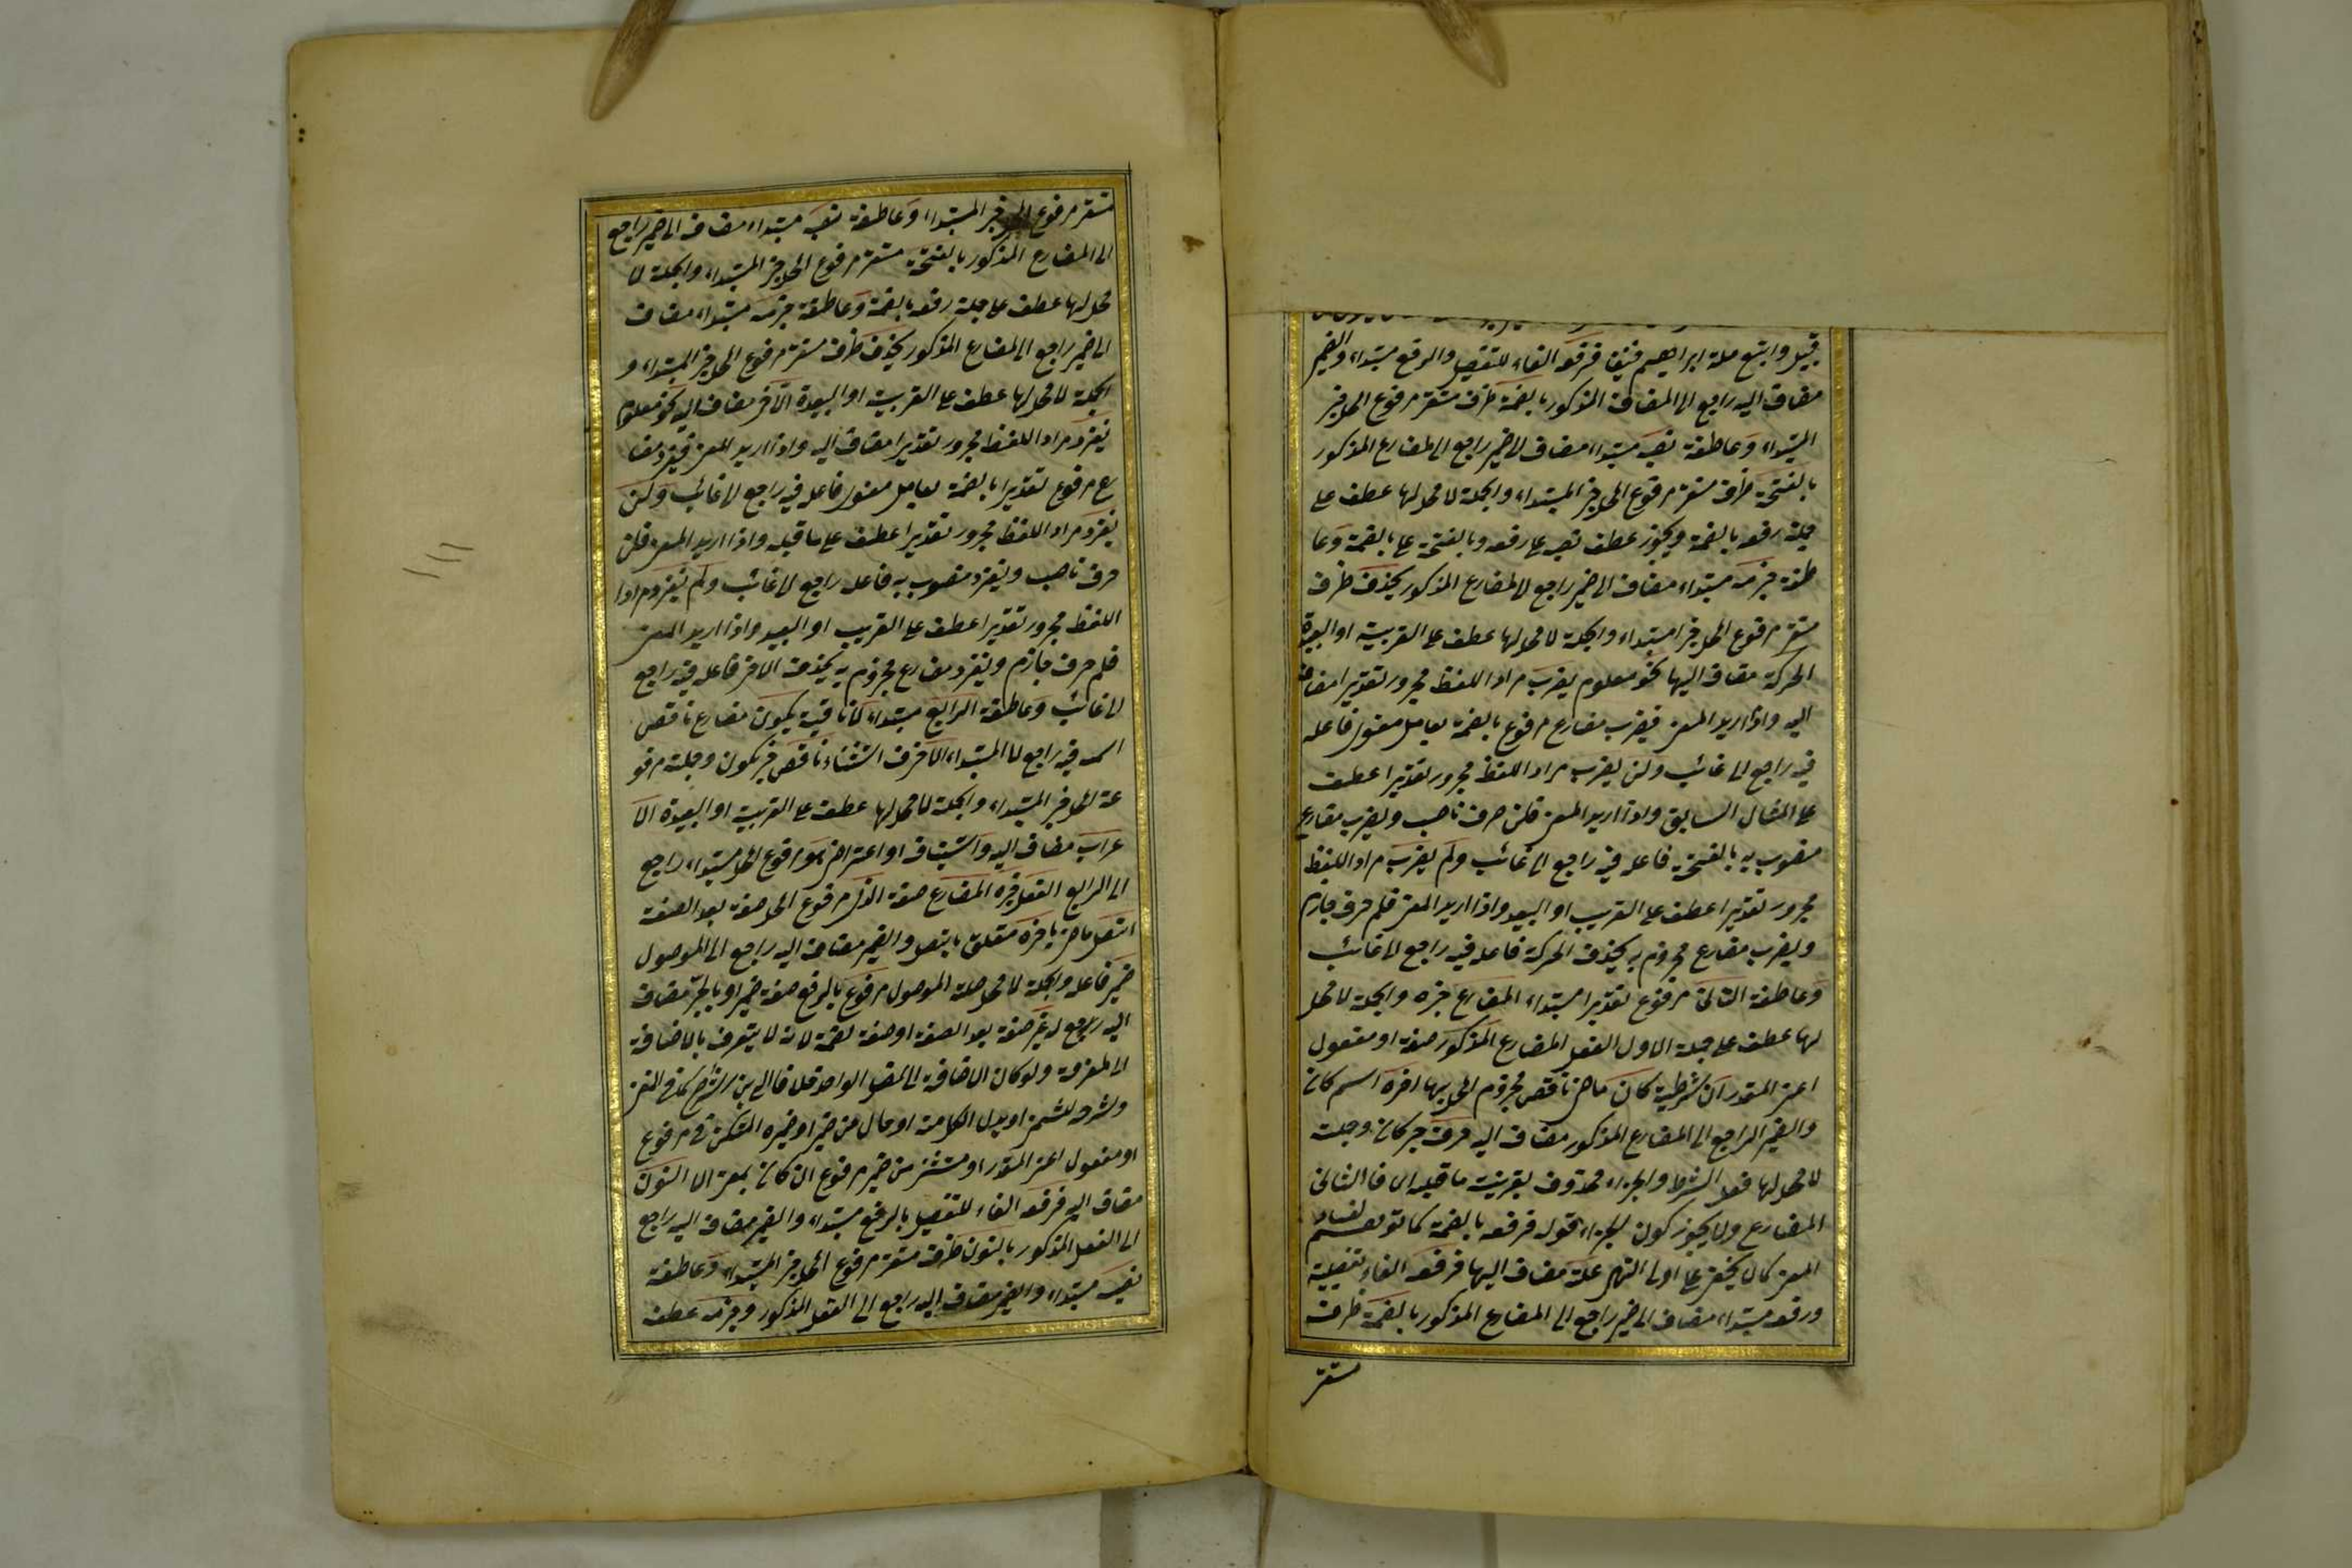 قبيل واتبع ملة ابراهيم فرفعه الفاء للتفصيل والرفع مبتداء والضمير
مضاف اليه راجع الى المضارع المذكور بالضمة ظرف مستقر مرفوع المحل خبر
المبتداء وعاطفة نصبه مبتداء مضاف الى ضمير راجع الى المضارع المذكور
بالفتحة ظرف مستقر مرفوع المحل خبر المبتداء والجملة لا محل لها عطف على
جملة رفعه بالضمة ويجوز عطف نصبه على رفعه وبالفتحة على بالضمة وعا
طفة جزمه مبتداء مضاف الى ضمير راجع الى المضارع المذكور بحذف ظرف
مستقر مرفوع المحل خبر المبتداء والجملة لا محل لها عطف على القريبة او البعيدة
الحركة مضاف اليها نحو معلوم يضرب مراد اللفظ مجرور تقديرا مضاف
اليه واذا اريد المعنى فيضرب مضارع مرفوع بالضمة بعامل معنوى فاعله
فيه راجع الى غائب ولن يضرب مراد اللفظ مجرور تقديرا عطف
على المثال السابق واذا اريد المعنى فلن حرف ناصب ويضرب مضارع
منصوب به بالفتحة فاعله فيه راجع الى غائب ولم يضرب مراد اللفظ
مجرور تقديرا عطف على القريب او البعيد واذا اريد المعنى فلم حرف جازم
ويضرب مضارع مجزوم به بحذف الحركة فاعله فيه راجع الى غائب
وعاطفة الثانى مرفوع تقديرا مبتداء المضارع خبره والجملة لا محل
لها عطف على جملة الاول الفعل المضارع المذكور صفة او مفعول
اعنى المقدر ان شرطية كان ماض ناقص مجزوم المحل بها اخره اسم كان
والضمير الراجع الى المضارع المذكور مضاف اليه حرف خبر كان وجملته
لا محل لها فعل الشرط والجزاء محذوف بقرينة ما قبله اى فالثانى
المضارع ولا يجوز كون الجزاء قوله فرفعه بالضمة كما توهم لفساد
المعنى كما لا يخفى على اولى النهى علة مضاف اليها فرفعه الفاء تفصيلية
ورفعه مبتداء مضاف الى ضمير راجع الى المضارع المذكور بالضمة ظرف
مستقر
مستقر مرفوع المحل خبر المبتداء وعاطفة نصبه مبتداء مضاف الى ضمير راجع
الى المضارع المذكور بالفتحة مستقر مرفوع المحل خبر المبتداء والجملة لا
محل لها عطف على جملة رفعه بالضمة وعاطفة جزمه مبتداء مضاف
الى ضمير راجع الى المضارع المذكور بحذف ظرف مستقر مرفوع المحل خبر المبتداء و
الجملة لا محل لها عطف على القريبة او البعيدة الاخر مضاف اليه نحو معلوم
يغزو مراد اللفظ مجرور تقديرا مضاف اليه واذا اريد المعنى فيغزو مضا
رع مرفوع تقديرا بالضمة بعامل معنوى فاعله فيه راجع الى غائب ولن
يغزو مراد اللفظ مجرور تقديرا عطف على ما قبله واذا اريد المعنى فلن
حرف ناصب ويغزو منصوب به فاعله راجع الى غائب ولم يغز مراد
اللفظ مجرور تقديرا عطف على القريب او البعيد واذا اريد المعنى
فلم حرف جازم ويغز مضارع مجزوم به بحذف الاخر فاعله فيه راجع
الى غائب وعاطفة الرابع مبتداء لا نافية يكون مضارع ناقص
اسمه فيه راجع الى المبتداء الا حرف استثناء ناقص خبر يكون وجملته مرفو
عة المحل خبر المبتداء والجملة لا محل لها عطف على القريبة او البعيدة الا
عراب مضاف اليه واستيناف او اعتراض هو مرفوع المحل مبتداء راجع
الى الرابع الفعل خبره المضارع صفة الفعل مرفوع المحل صفة بعد الصفة
اتصل ماض باخره متعلق باتصل والضمير مضاف اليه راجع الى الموصول
ضمير فاعله والجملة لا محل صلة الموصول مرفوع بالرفع صفة ضمير او بالجر مضاف
اليه راجع لـ غير صفة بعد الصفة او صفة لضمة لانه لا يتعرف بالاضافة
الى المعرفة ولو كان الاضافة الى
او مفعول اعنى المقدر او مستثنى من ضمير مرفوع ان كان بمعنى الا النون
مضاف اليه فرفعه الفاء للتفصيل بالرفع مبتداء والضمير مضاف اليه راجع
الى الفعل المذكور بالنون ظرف مستقر مرفوع المحل خبر المبتداء وعاطفة
نصبه مبتداء والضمير مضاف اليه راجع الى الفعل المذكور وجزمه عطف